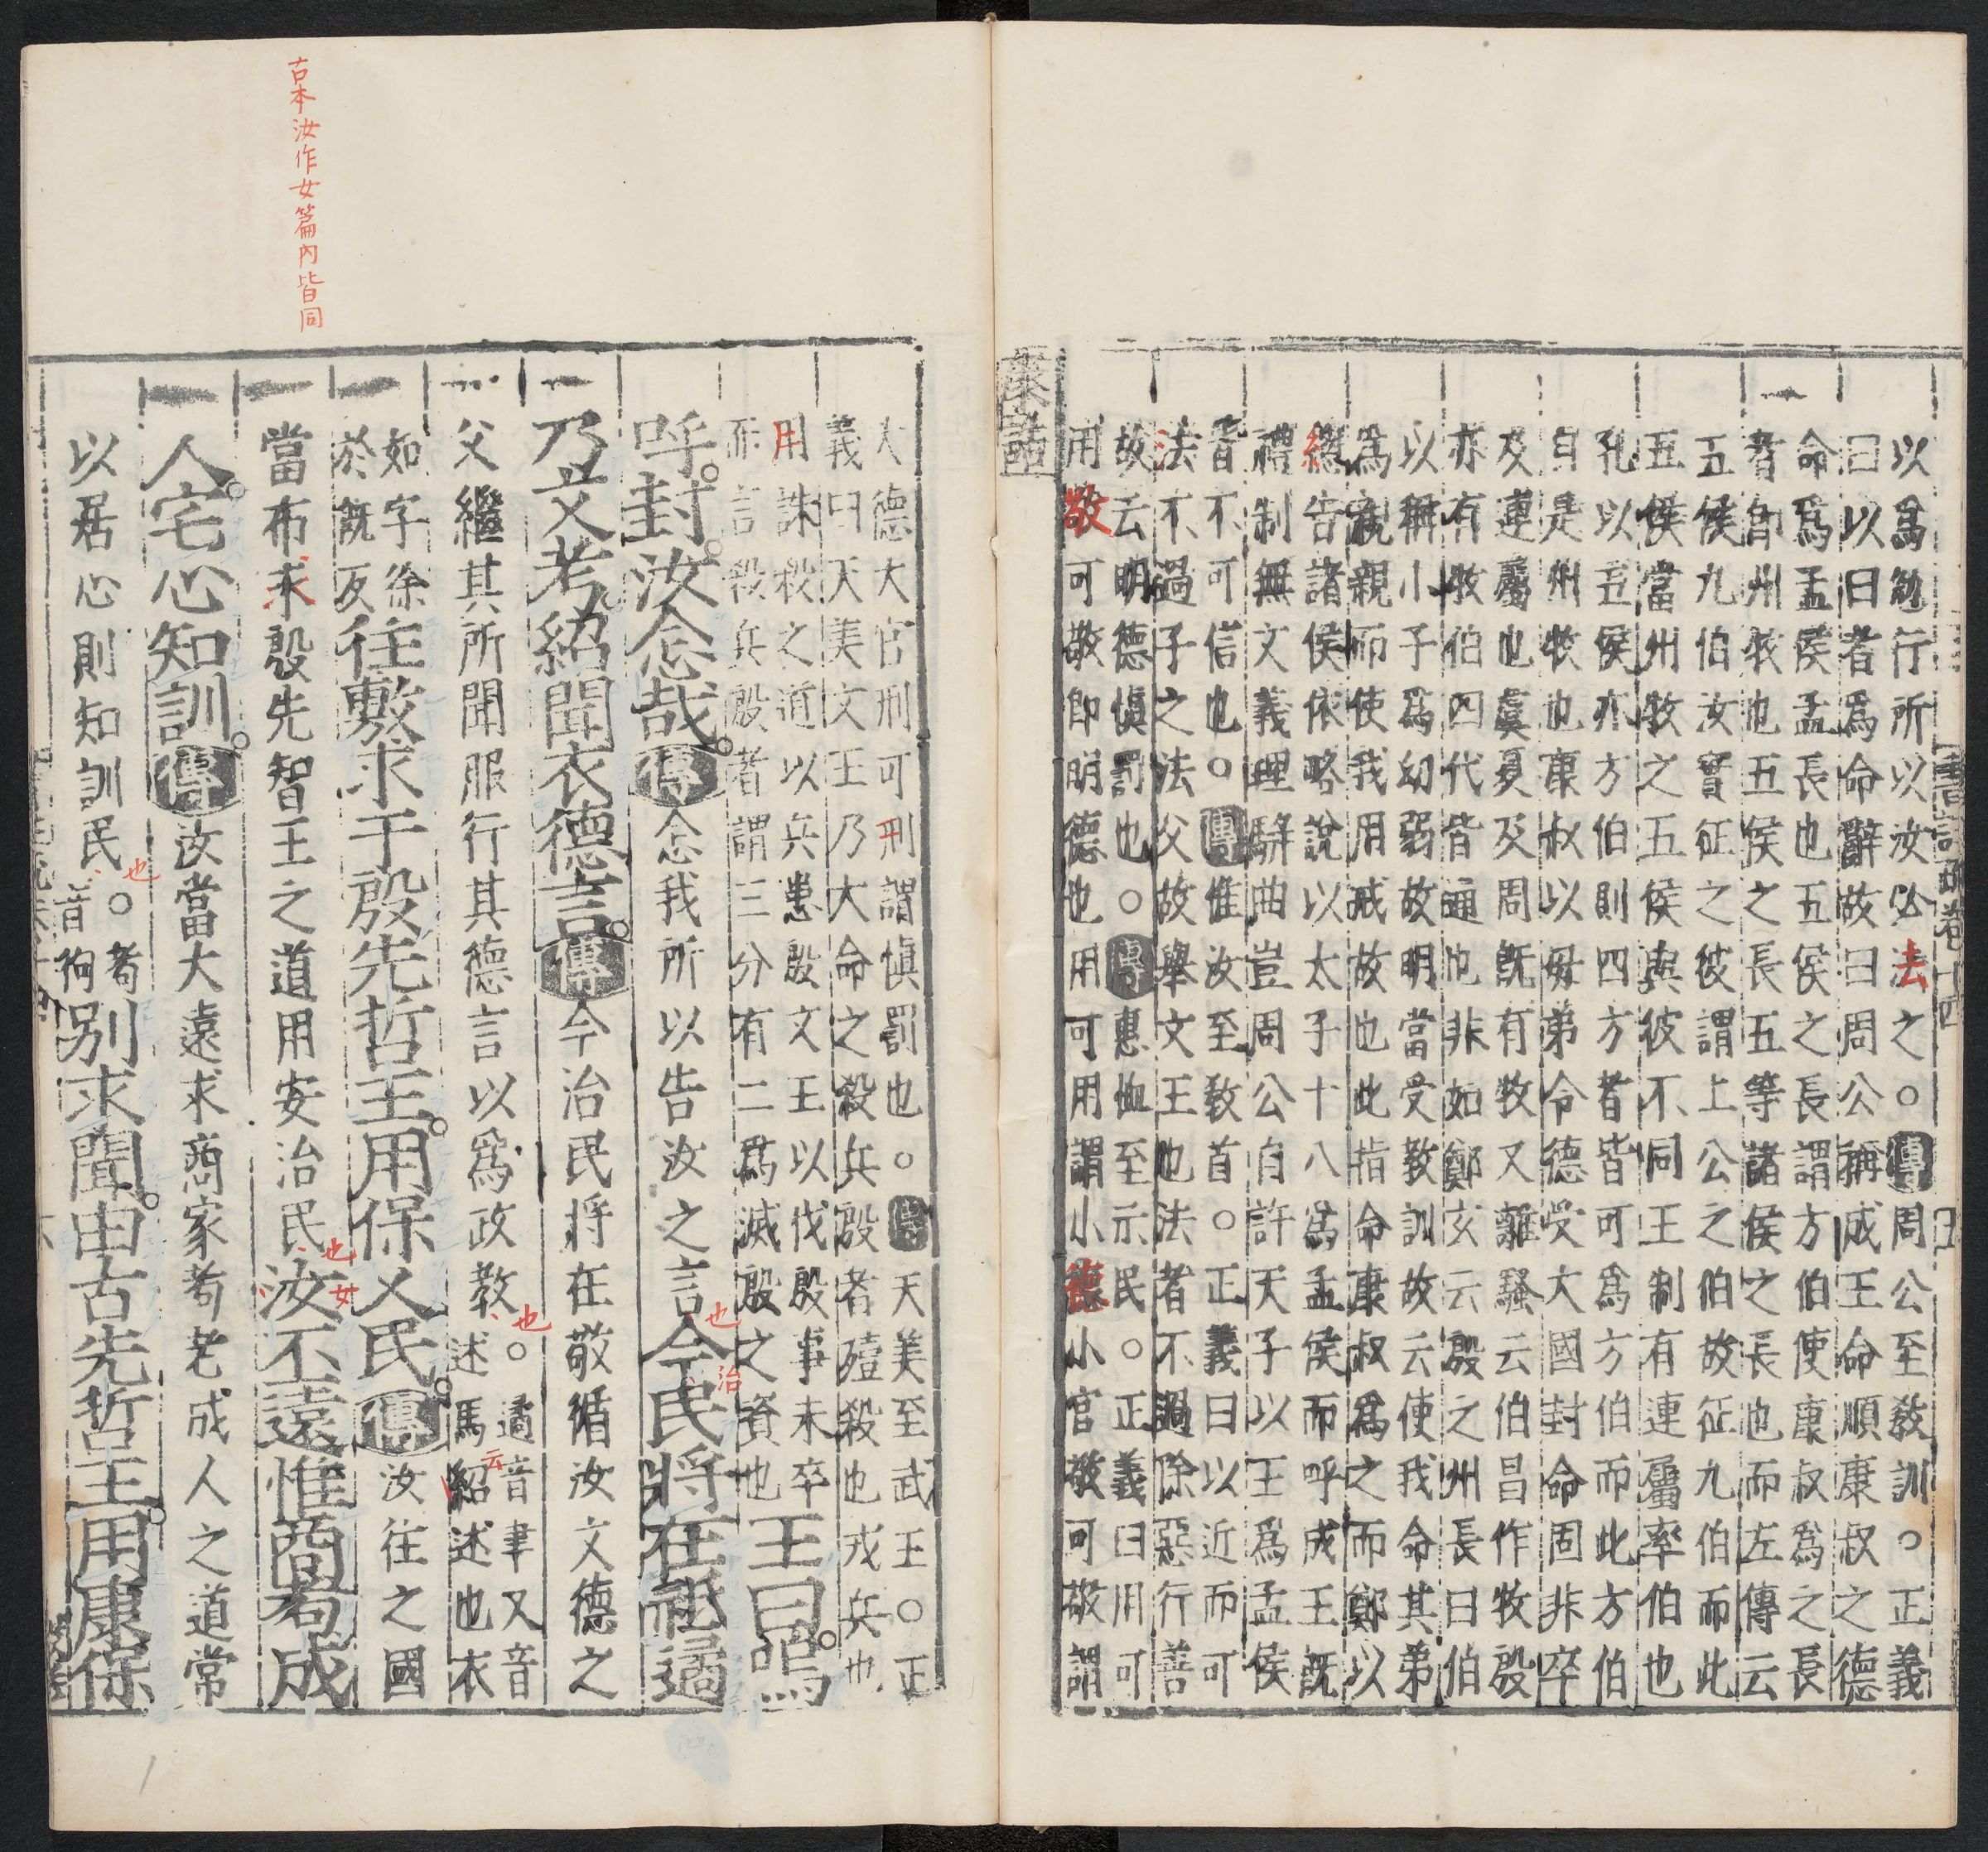 康誥
以爲勉行所以汝必法之。傳周公至教訓。正義
曰以曰者爲命辭故曰周公稱成王命順康叔之德
命爲孟侯孟長也五侯之長謂方伯使康叔爲之長
者即州牧也五侯之長五等諸侯之長也而左傳云
五侯九伯汝實征之彼謂上公之伯故征九伯而此
五侯當州牧之五侯與彼不同王制有連屬率伯也
孔以五侯亦方伯則四方者皆可爲方伯而此方伯
自是州牧也康叔以母弟令德受大國封命固非卒
及連屬也虞夏及周旣有牧又離騷云伯昌作牧殷
亦有牧伯四代皆通也非如鄭玄云殷之州長曰伯
以稱小子爲幼弱故明當受教訓故云使我命其弟
爲親親而使我用戒故也此指命康叔爲之而鄭以
總告諸侯依略說以太子十八爲孟侯而呼成王旣
禮制無文義理駢曲豈周公自許天子以王爲孟侯
皆不可信也。傳惟汝至敎首。正義曰以近而可
法不過子之法父故舉文王也法者不過除惡行善
故云明德愼罰也。傳惠恤至示民。正義曰用可
用敬可敬即明德也用可用謂小德小官敬可敬謂
古本汝作女篇內皆同
大德大官刑可刑謂愼罰也。傳天美至武王。正
義曰天美文王乃大命之殺兵殷者殪殺也戎兵也
用誅殺之道以兵患殷文王以伐殷事未卒
而言殺兵殷者謂三分有二爲滅殷之資也
王曰嗚
呼封汝念哉傳念我所以告汝之言也今民治將在祗遹
乃文考紹聞衣德言傳今治民將在敬循汝文德之
父繼其所聞服行其德言以爲政教也。遹音聿又音
述馬云紹述也衣
如字徐
於旣反
往敷求于殷先哲王用保乂民傳汝往之國
當布求殷先智王之道用安治民也汝女丕遠惟商耇成
人宅心知訓傳汝當大遠求商家耇老成人之道常
以居心則知訓民也。耇
音狗
別求聞由古先哲王用康保